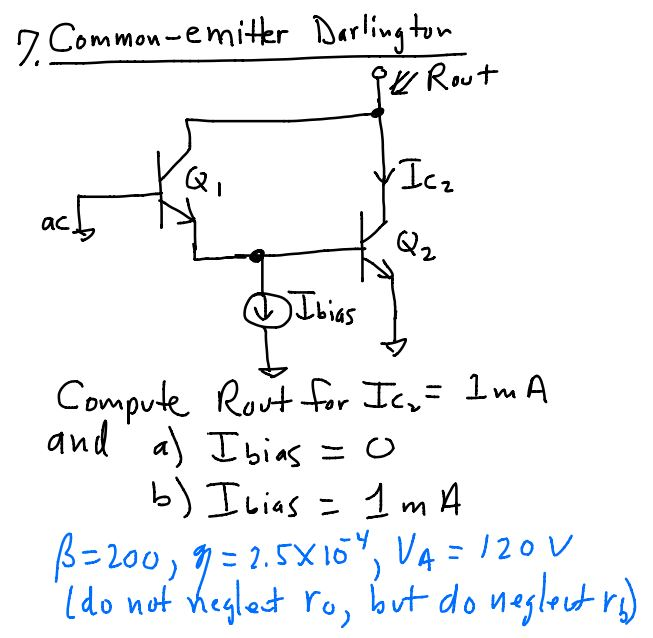 7. Common-emitter Darlington
Rout
Q1
Ic2
ac
Q2
Ibias
Compute Rout for Ic2 = 1mA
and a) Ibias = 0
b) Ibias = 1mA
β=200, η=2.5×10⁻⁴, VA=120V
(do not neglect ro, but do neglect rb)